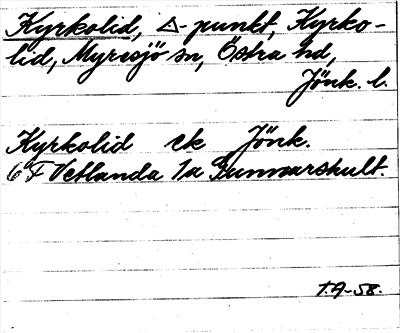 Kyrkolid, △-punkt, Kyrko-
lid, Myresjö sn, Östra hd,
Jönk. l.
Kyrkolid ek Jönk.
6F Vetlanda 1a Gunnarshult.
1.9-58.